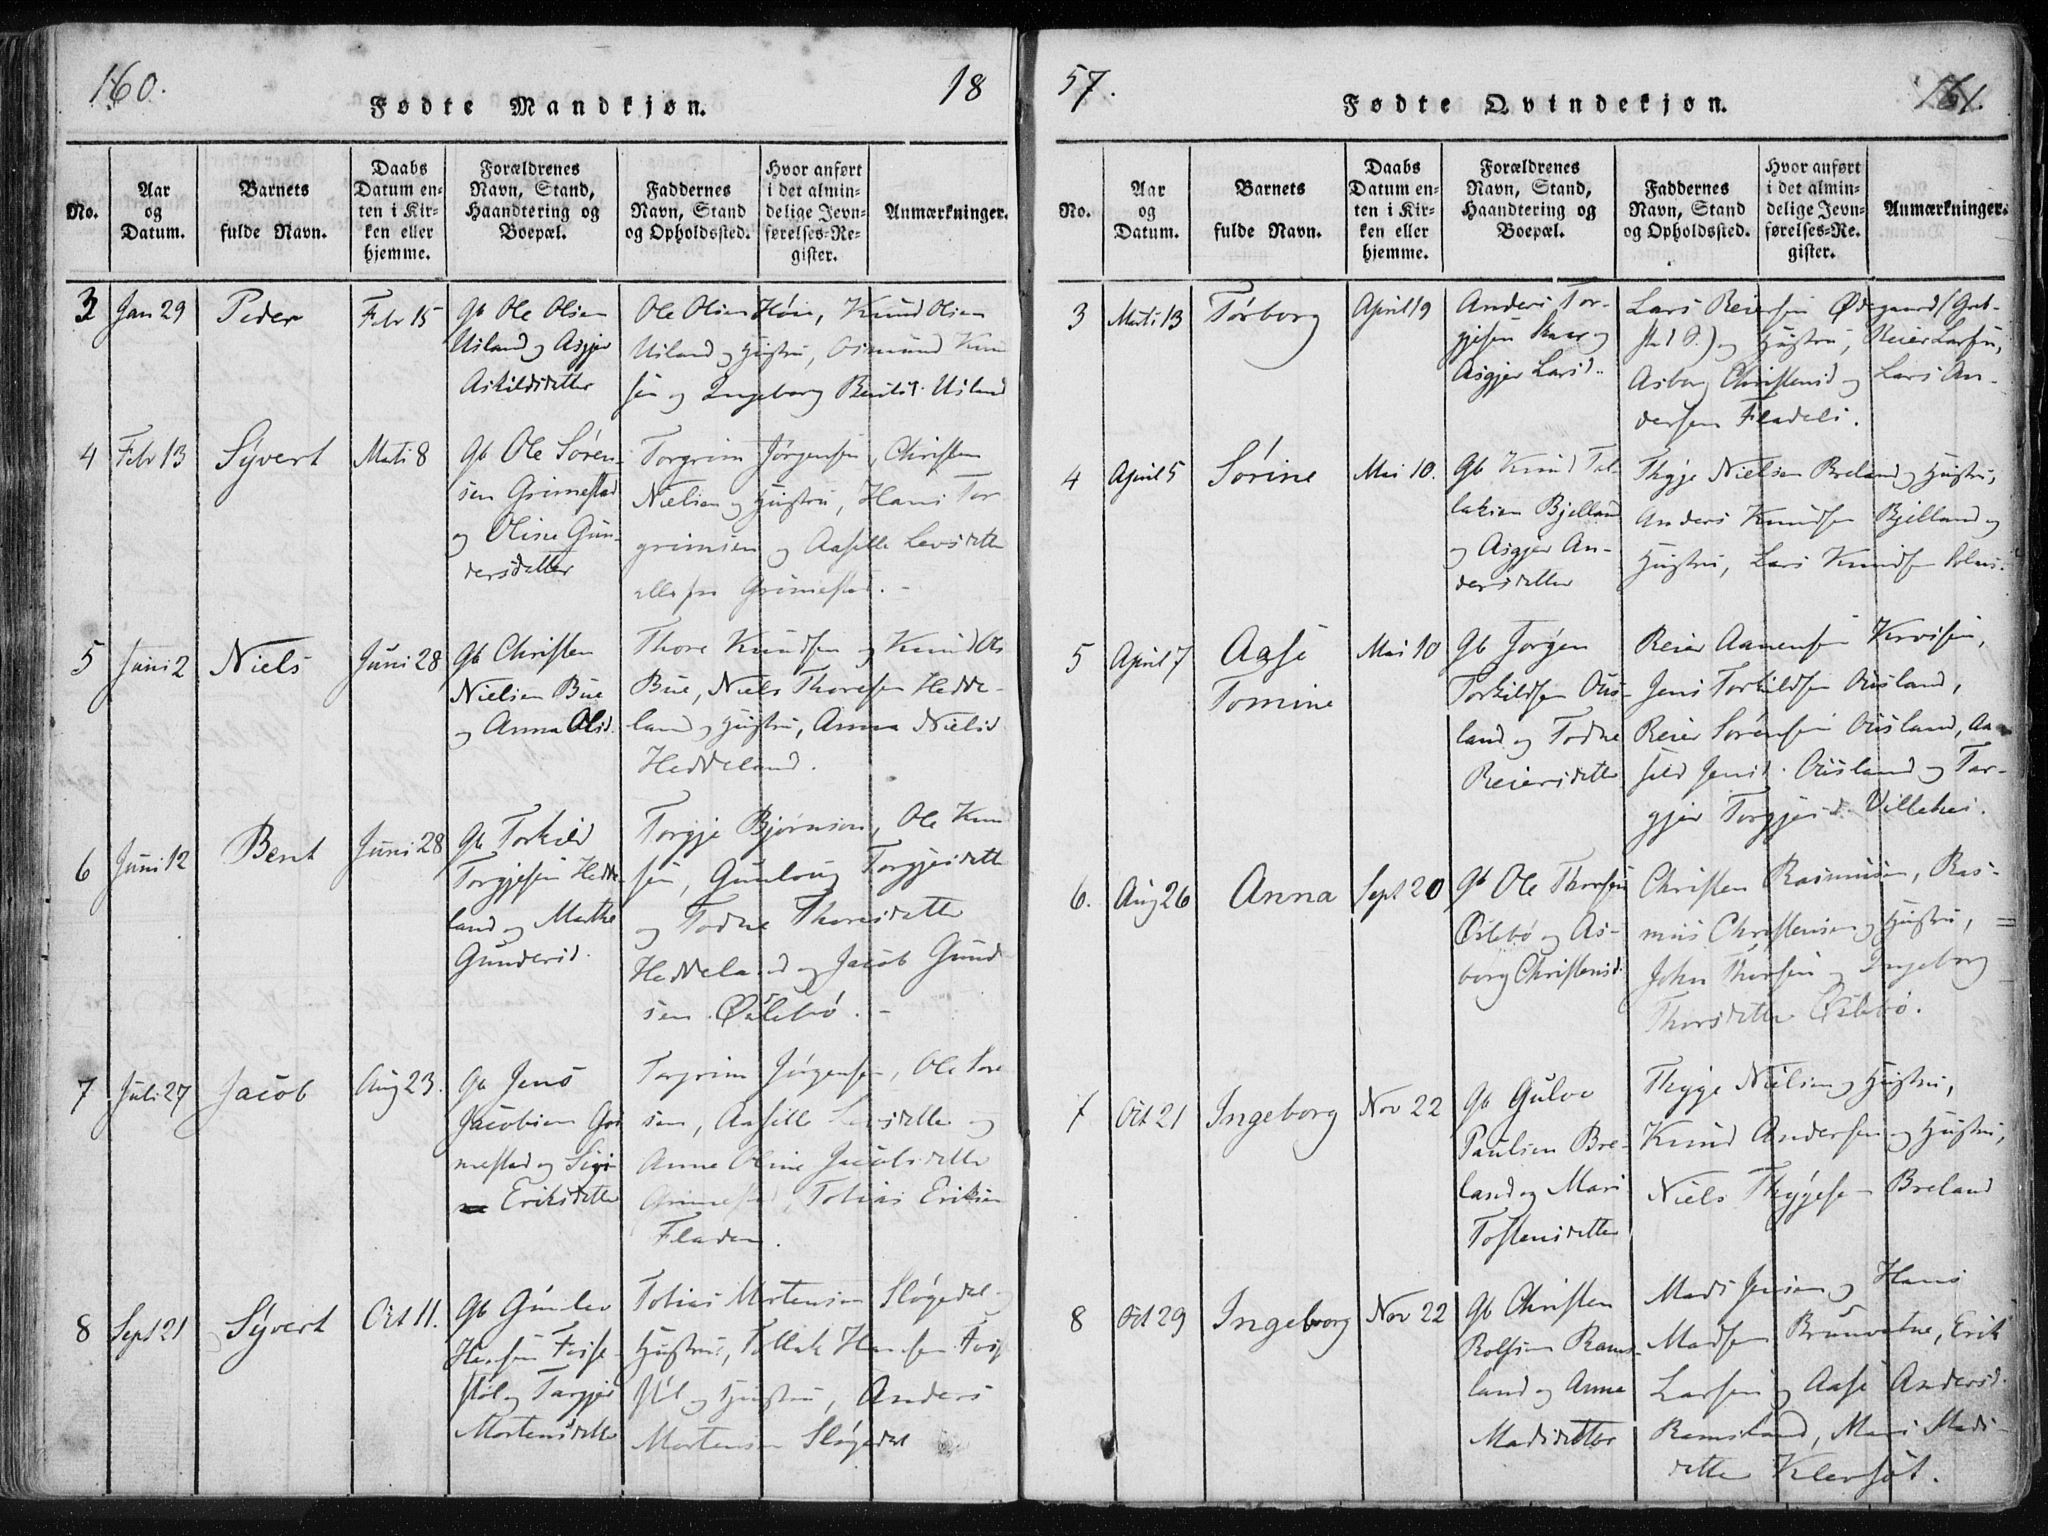 160.
18
Fødte Mandkjøn.
No.
Aar
og
Datum.
Barnets
fulde Navn.
Daabs
Datum en-
ten i Kir-
ken eller
hjemme.
Forældrenes
Navn, Stand,
Haandtering og
Boepæl.
Faddernes
Navn, Stand
og Opholdssted.
Hvor anført
i det almin-
delige Jevn-
førelses-Re-
gister.
Anmærkninger.
3 Jan 29 Peder Febr 15
Gb Ole Olsen
Usland og Asgjer
Askildsdetter
Ole Olsen Knud Olsen
Usland og Hustru, Osmund Knu
sen og Ingeborg Bentsd. Usland
4 Febr 13 Syvert Marti 8
Gb Ole Søren-
sen Grimestad
og Oline Gun-
dersdetter
Torgrim Jørgensen, Christen
Nielsen og Hustru, Hans Tor
grimsen og Aasille Levsdetter
alle fra Grimestad.
5 Juni 2 Niels Juni 28
Gb Christen
Nielsen Bue
og Anna Olsd.
Thore Knudsen og Knud Ols
Bue, Niels Thoresen Hedde-
land og Hustru, Anna Nielsd
Heddeland.
6 Juni 12 Bent Juni 28
Gb Torkild
Torgjesen Hedde-
land og Marthe
Gundersd.
Torgje Bjørnsen, Ole Knud
sen, Gunloug Torgjesdetter
og Todne Thoresdetter
Heddeland og Jacob Gund
sen Øslebø.
7 Juli 27 Jacob Aug 23.
Gb Jens
Jacobsen Gri
mestad og Siri
Eriksdetter
Torgrim Jørgensen, Ole Sørn
sen, Aasille Levsdetter og
Anne Oline Jacobsdetter
Grimestad, Tobias Eriksen
Fladen.
8 Sept 21 Syvert Oct 11.
Gb Gunlev
Hansen Foise-
støl og Targjer
Mortensdetter
Tobias Mortensen Sløgedal og
Hustru, Tollak Hansen Fois
støl og Hustru, Anders
Mortensen Sløgedal
57.
161.
Fødte Qvindekjøn.
No.
Aar
og
Datum.
Barnets
fulde Navn.
Daabs
Datum en-
ten i Kir-
ken eller
hjemme.
Forældrenes
Navn, Stand,
Haandtering og
Boepæl.
Faddernes
Navn, Stand
og Opholdssted.
Hvor anført
i det almin-
delige Jevn-
førelses-Re-
gister.
Anmærkninger.
3 Marti 13 Torborg April 19
Anders Tor-
gjesen og
Asgjer Larsd.
Lars Reiersen Ødegaard
og Hustru, Reier Larsen,
Asborg Christensd og Lars An-
dersen Fladeli.
4 April 5 Sørine Mai 10.
Gb Knud Tol-
laksen Bjelland
og Asgjer An-
dersdetter
Thyge Nielsen Breland og Hustru,
Anders Knudsen Bjelland og
Hustru, Lars Knudsen
5 April 7 Aase
Tomine Mai 10
Gb Jørgen
Torkildsen Ous-
land og Todne
Reiersdetter
Reier Aanensen
Jens Torkildsen Ousland,
Reier Sørensen Ousland, Aa
sild Jensd. Ousland og Tar-
gjer Torgjesd.
6. Aug 26 Anna Sept 20
Gb Ole Thorsen
Øslebø og As-
borg Christensd.
Christen Rasmusen, Ras-
mus Christensen og Hustru,
John Thorsen og Ingeborg
Thorsdetter Øslebø.
7 Oct 21 Ingeborg Nov 22
Gb Gulov
Paulsen Bre-
land og Mari
Tostensdetter
Thyge Nielsen og Hustru,
Knud Andersen og Hustru,
Niels Thygesen Breland
8 Oct 29 Ingeborg Nov 22
Gb Christen
Rolfsen Rams-
land og Anna
Madsdetter
Mads Jensen og Hans
Madsen Brunvatne, Erik
Larsen og Aase Andersd.
Ramsland, Mari Mads-
detter